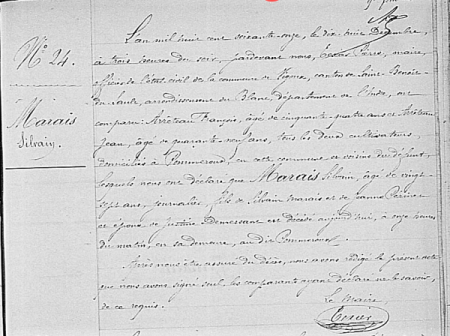 N° 24.
Marais
Silvain.
L'an mil huit cent soixante-onze, le dix-huit Décembre,
à trois heures du soir, pardevant nous, Texier Pierre, maire,
officier de l'état civil de la commune de canton de Saint Benoit-
du-Sault, arrondissement du Blanc, département de l'Indre, ont
comparu Arréteau François, âgé de cinquante-quatre ans et Arréteau
Jean, âgé de quarante-neuf ans, tous les deux cultivateurs,
domiciliés à Pommeroux, en cette commune et voisins du défunt,
lesquels nous ont déclaré que Marais Silvain, âgé de vingt-
sept ans, journalier, fils de Silvain Marais et de Jeanne
et époux de Justine est décédé aujourd'hui, à onze heures
du matin, en sa demeure, au dit Pommeroux.
Après nous être assuré du décès, nous avons rédigé le présent acte
que nous avons signé seul, les comparants ayant déclaré ne le savoir,
de ce requis.
Le Maire
Texier